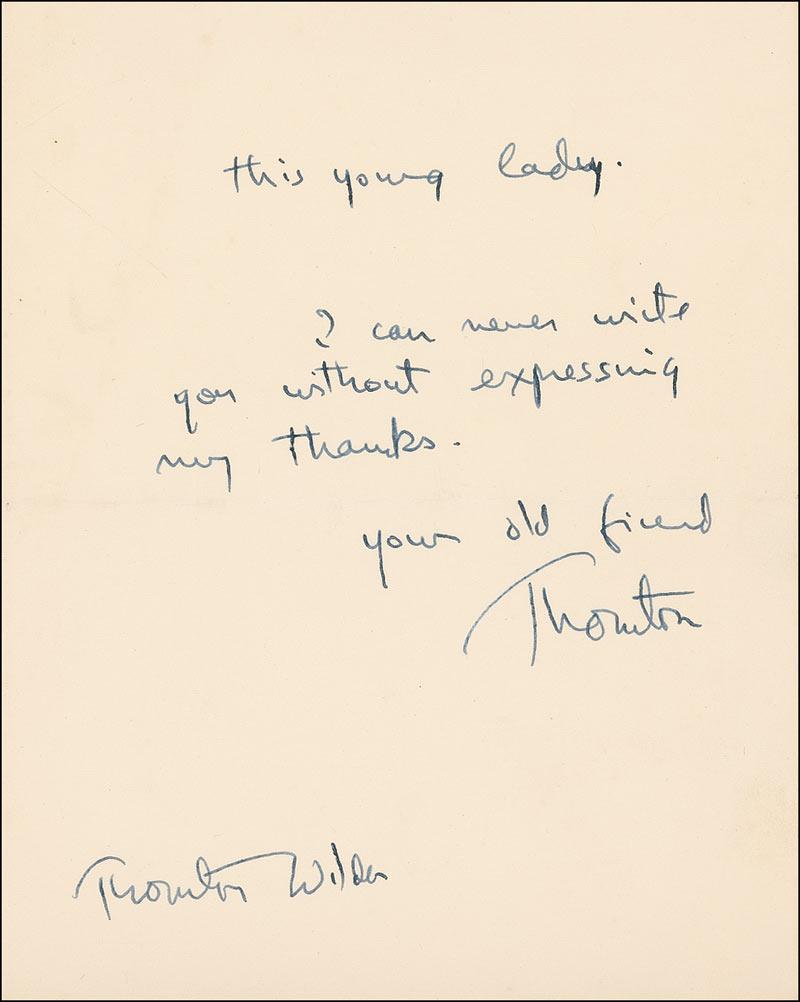 this young lady.
I can never write
you without expressing
my thanks.
your old friend
Thornton
Thornton Wilder